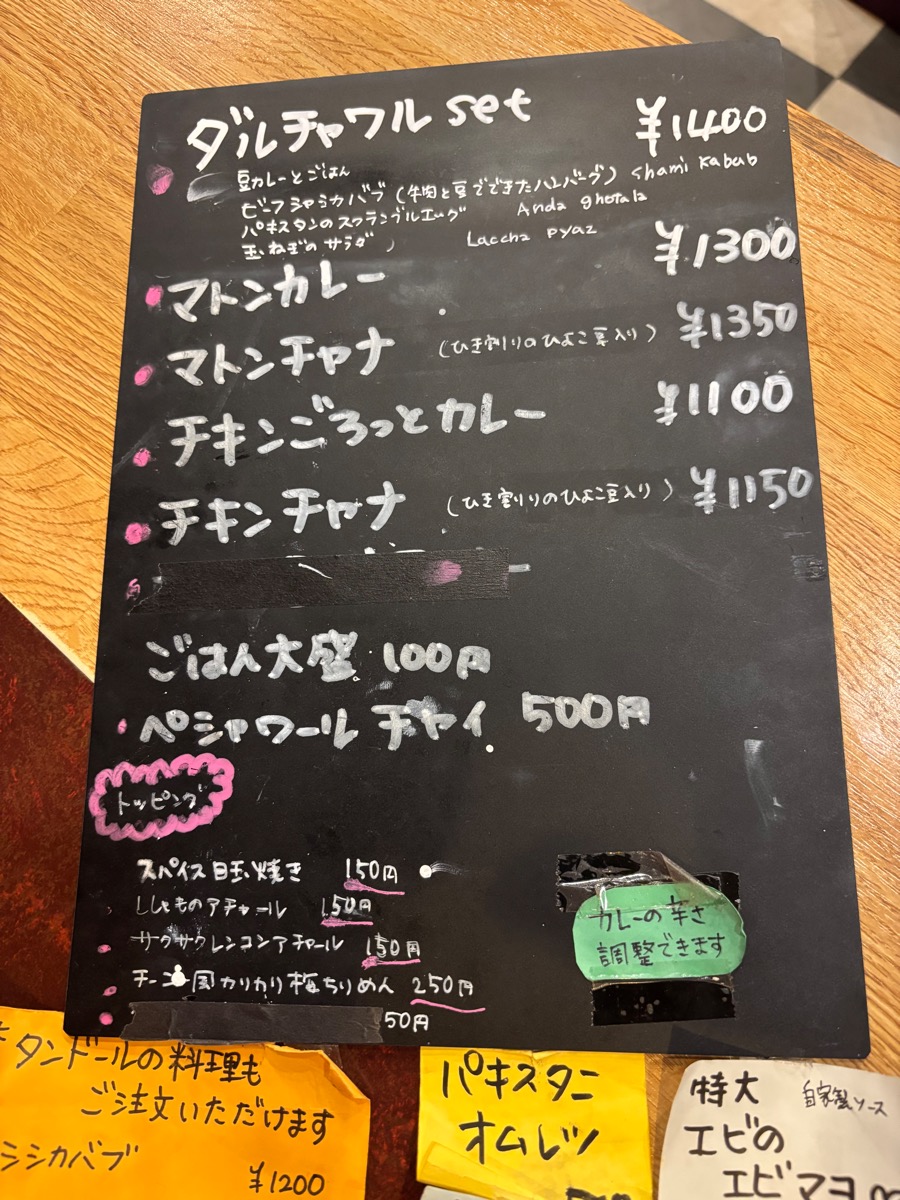 ダルチャワル set ¥1400
豆カレーとごはん
ビーフシャミカバブ (牛肉と豆でできたハンバーグ) Shami Kabab
パキスタンのスクランブルエッグ Anda ghotala
玉ねぎのサラダ Laccha Pyaz
マトンカレー ¥1300
マトンチャナ (ひき割りのひよこ豆入り) ¥1350
チキンごろっとカレー ¥1100
チキンチャナ (ひき割りのひよこ豆入り) ¥1150
ごはん大盛 100円
ペシャワール チャイ 500円
トッピング
スパイス目玉焼き 150円
ししとものアチャール 150円
サクサクレンコンアチャール 150円
国カリカリ梅ちりめん 250円
50円
カレーの辛さ
調整できます
タンドールの料理も
ご注文いただけます
シシカバブ
¥1200
パキスタニ
オムレツ
特大 自家製ソース
エビの
エビマヨ